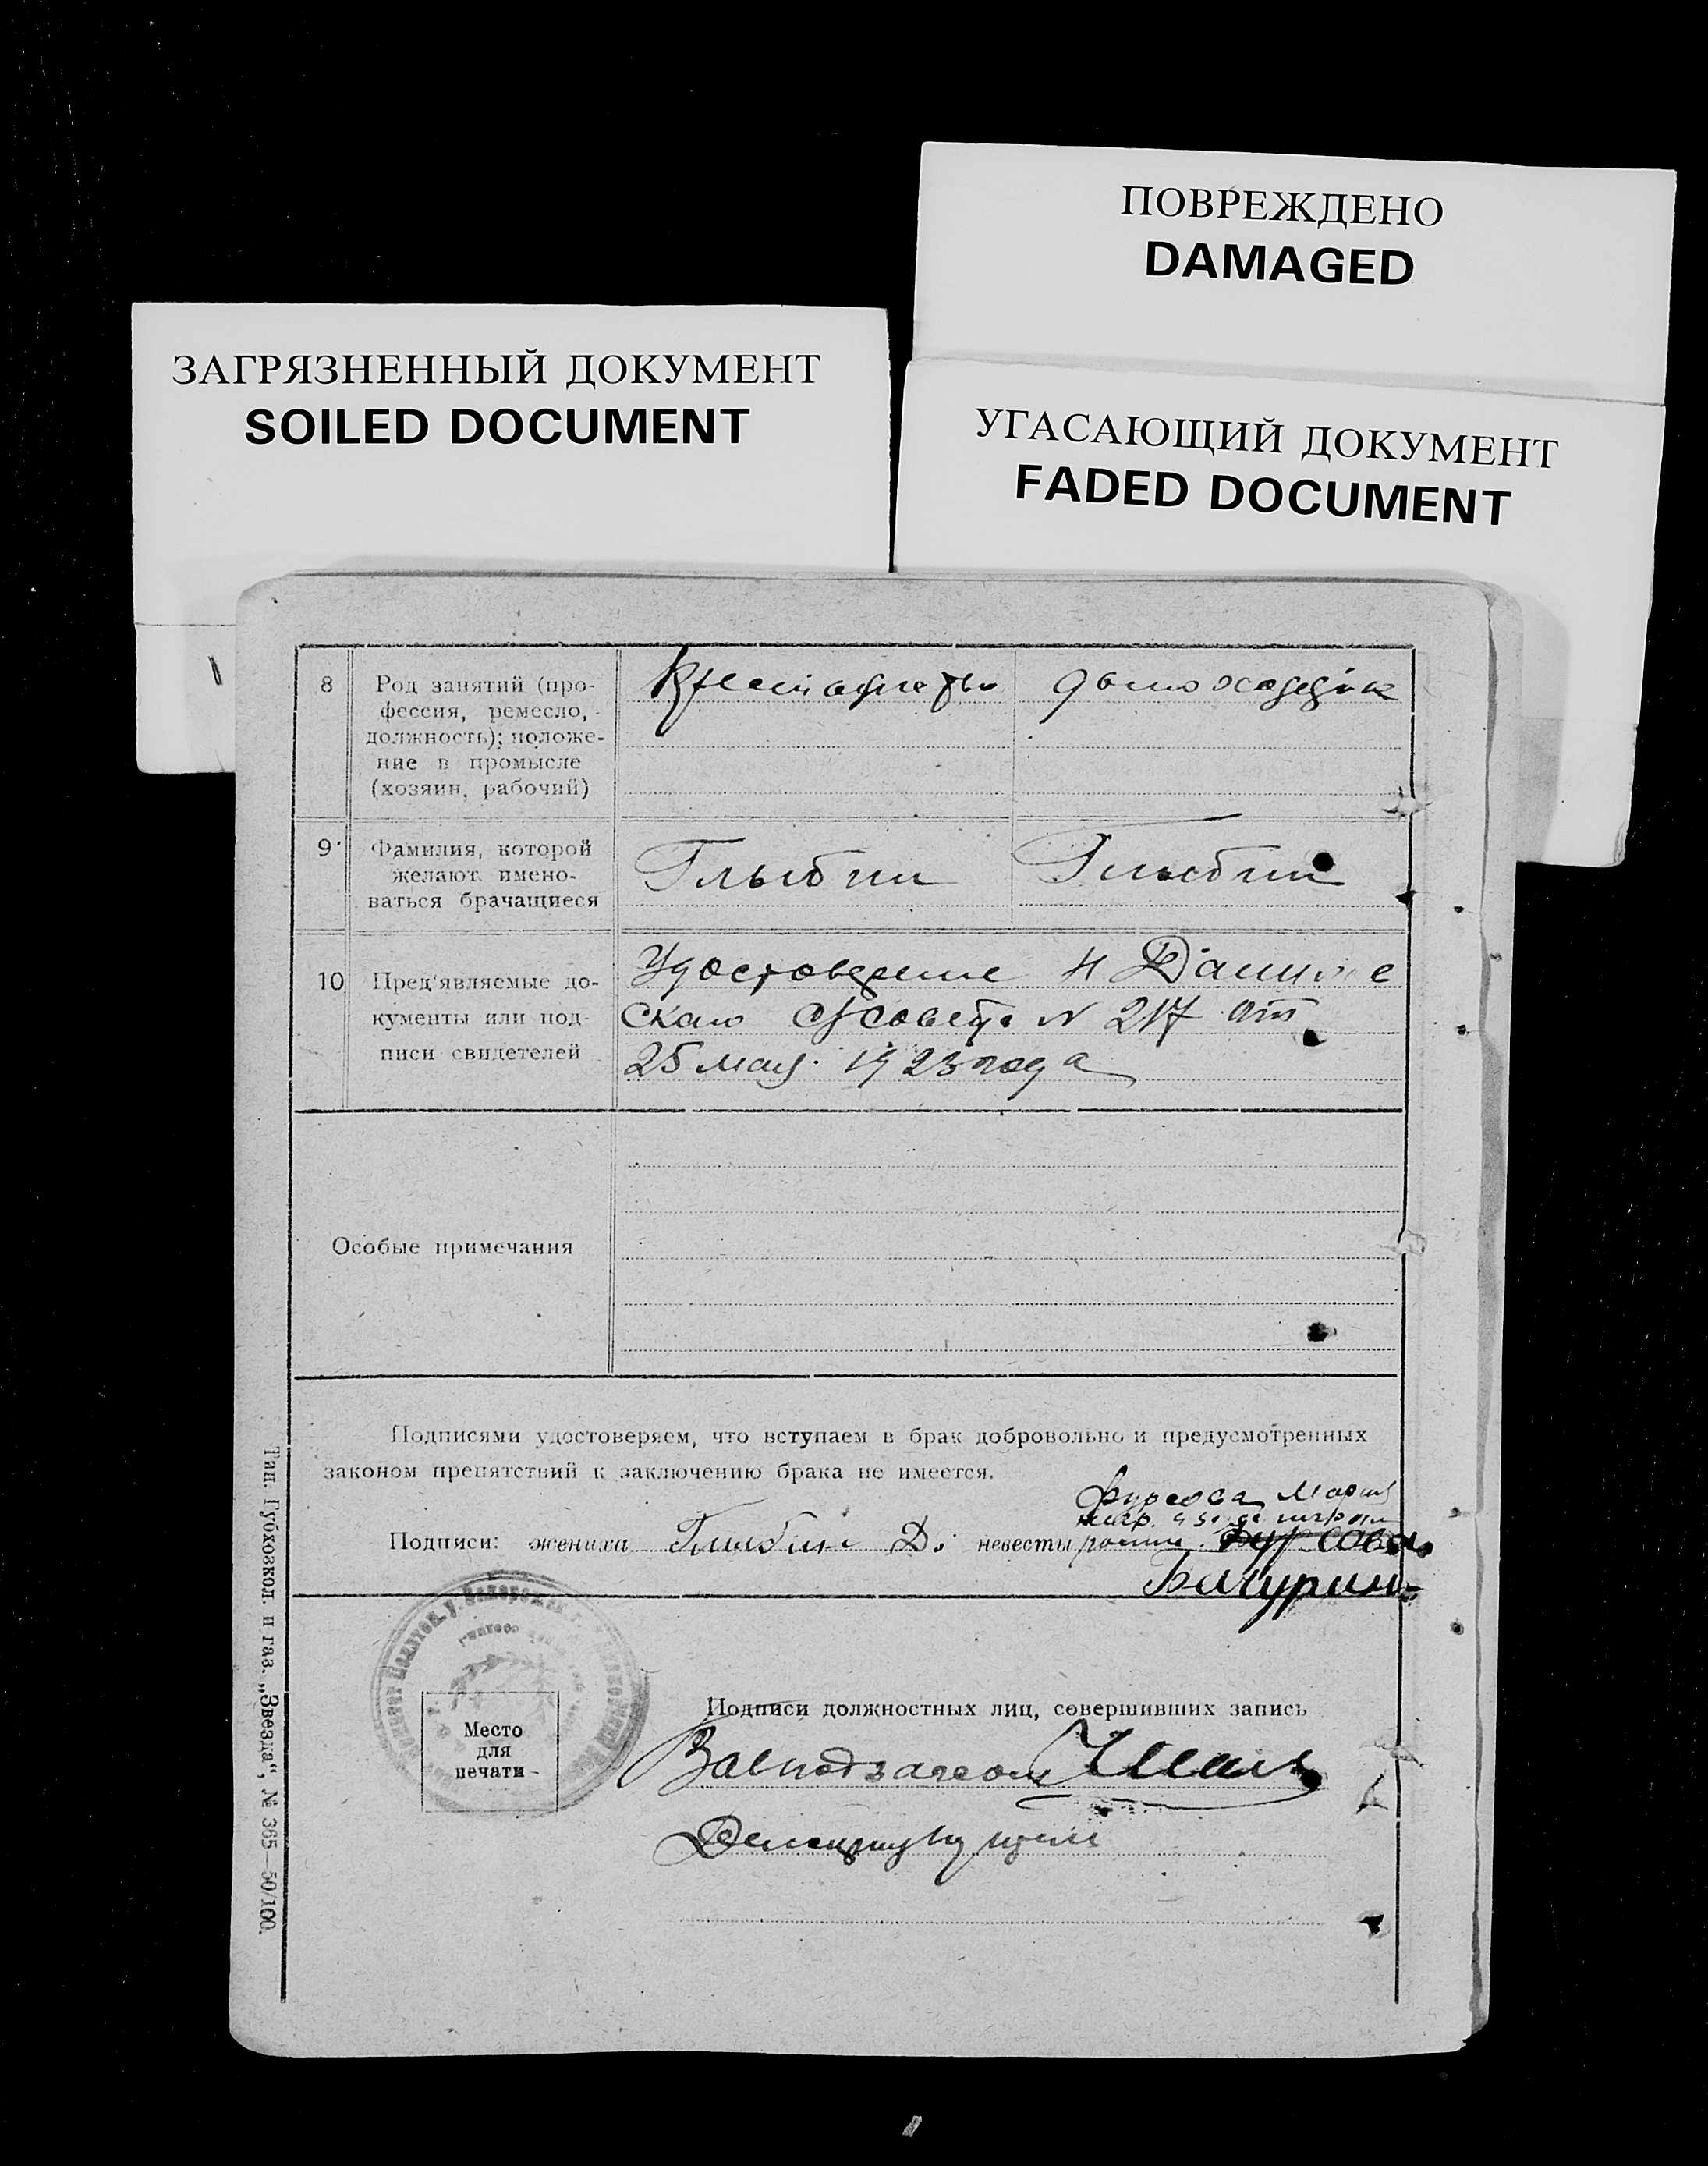 ПОВРЕЖДЕНО
DAMAGED
ЗАГРЯЗНЕННЫЙ ДОКУМЕНТ
SOILED DOCUMENT
УГАСАЮЩИЙ ДОКУМЕНТ
FADED DOCUMENT
8 Род занятий (про-
фессия, ремесло,
должность); положе-
ние в промысле
(хозяин, рабочий)
9 Фамилия, которой
желают имено-
ваться брачащиеся
Глыбин Глыбин
10 Пред'являемые до-
кументы или под-
писи свидетелей
Удостоверение Н
скаго с/совета N 217 от
25 мая 1923 года
Особые примечания
Подписями удостоверяем, что вступаем в брак добровольно и предусмотренных
законом препятствий к заключению брака не имеется.
Фурсова Мария
негр. а за де играт
Подписи: жениха Глыбин Д. невесты Фурсова
Бачурин
Место
для
печати
Подписи должностных лиц, совершивших запись
Завподзагсом
Делопроизвод
Тип. Губхозкол. и газ. „Звезда“, № 365—50/100.